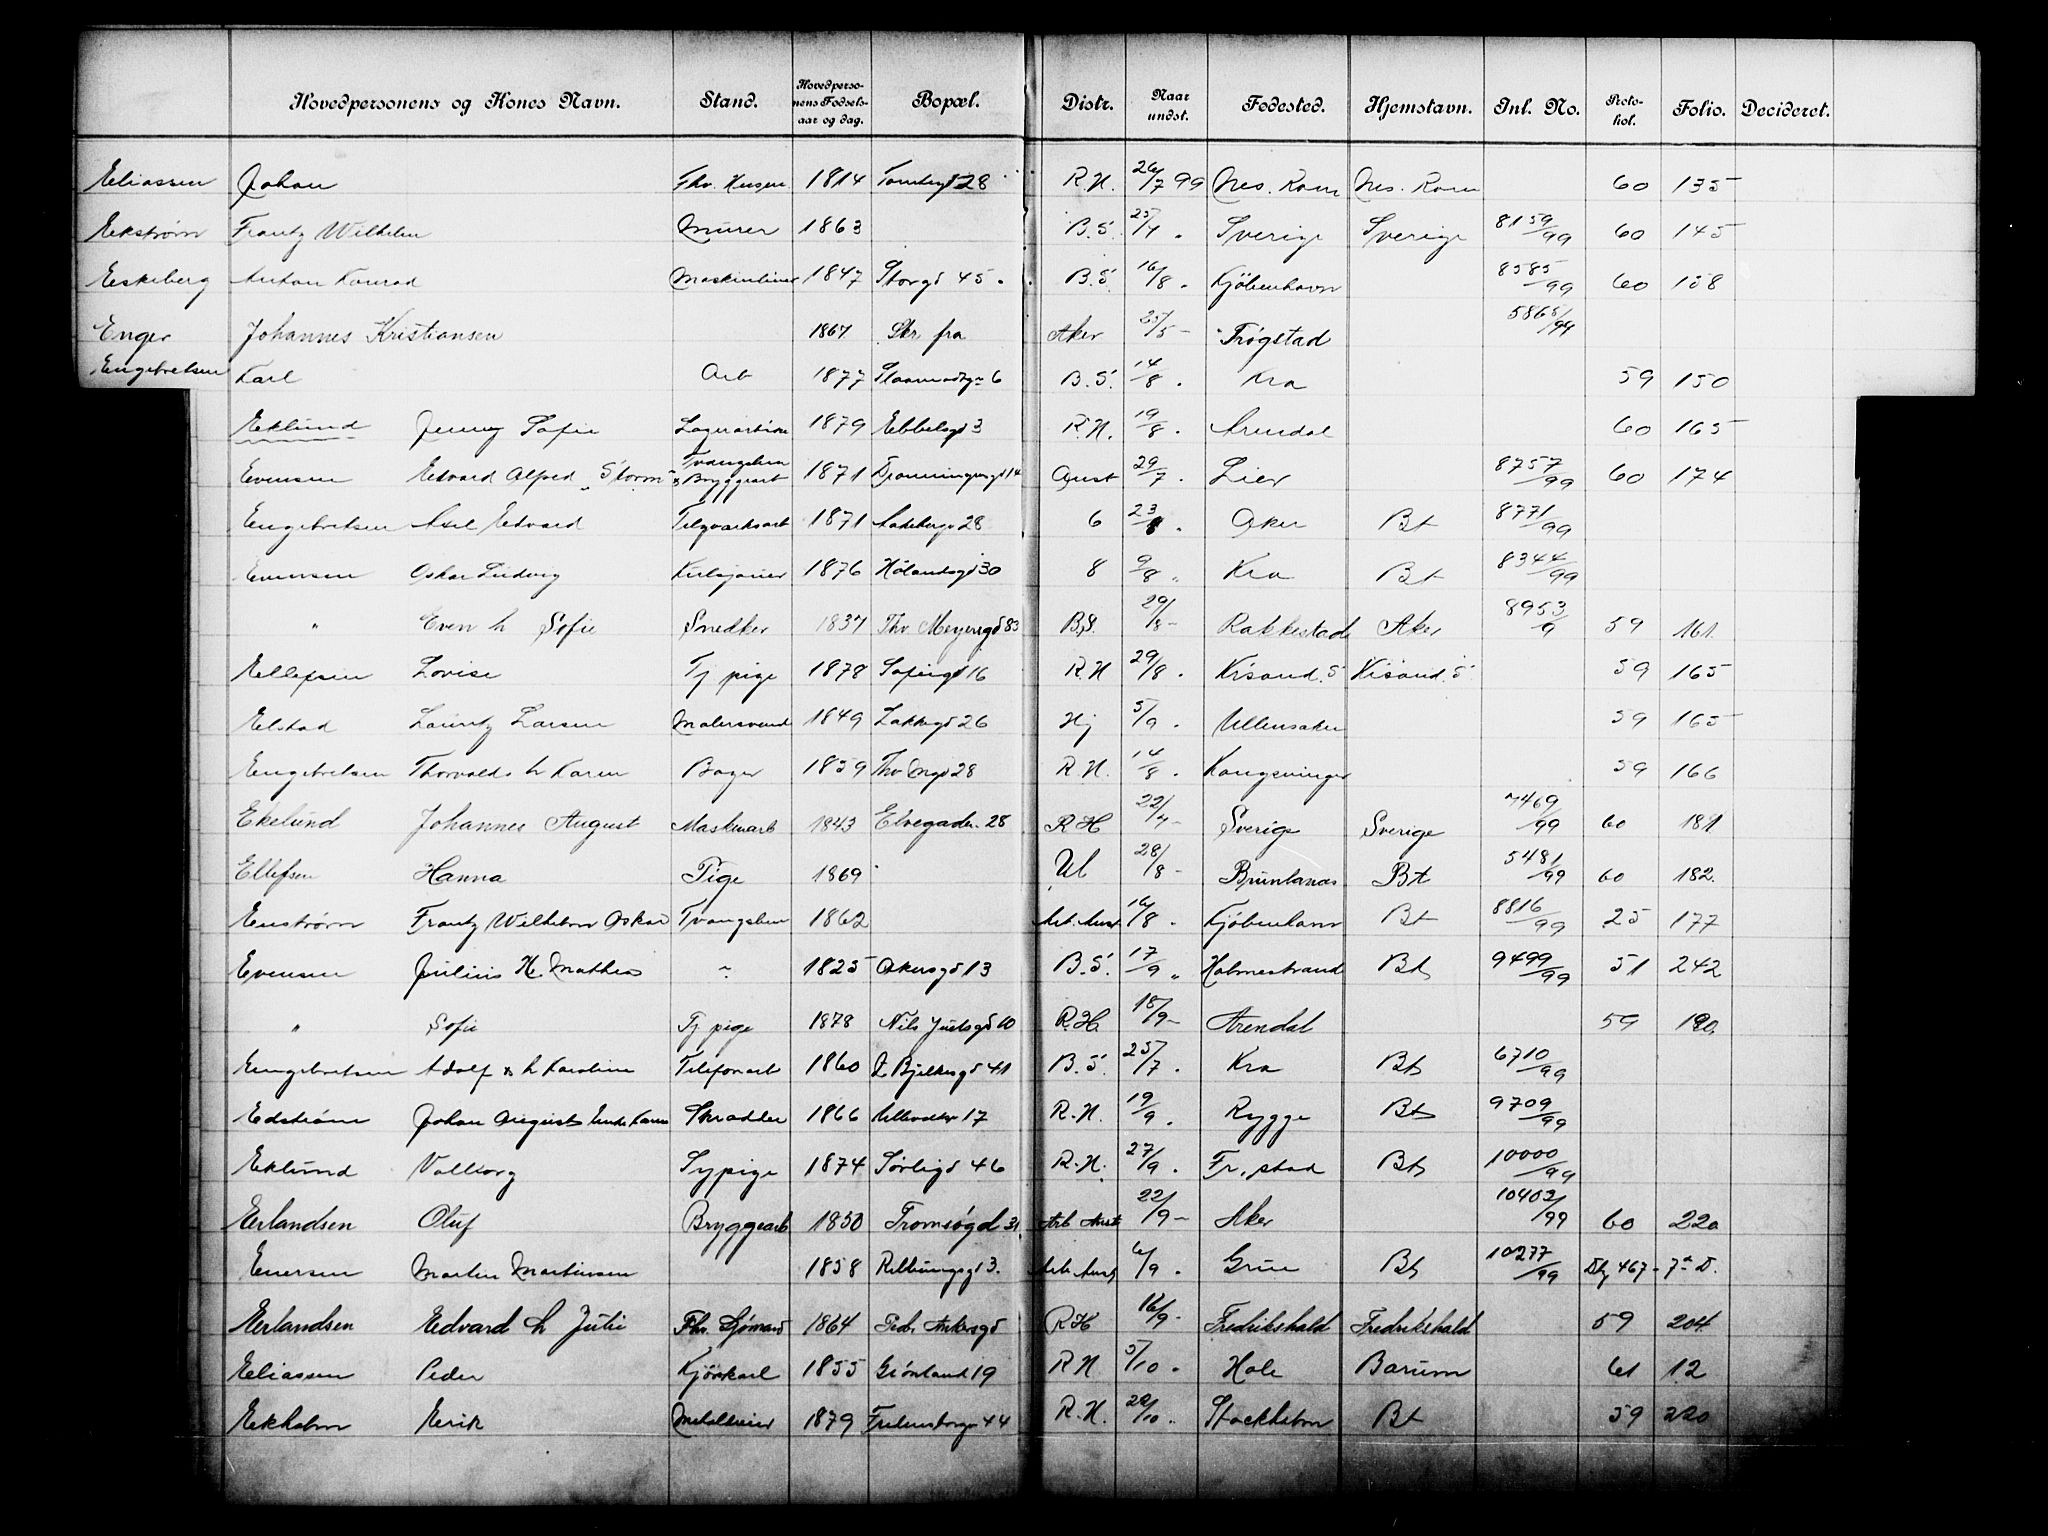 Hovedpersonens og Kones Navn. Stand. Hovedpersonens Fødselsaar og dag. Bopæl. Distr. Naar undst. Fødested. Hjemstavn. Inl. No. Protokol. Folio. Decideret.
Eliassen Johan Fhv. 1814 Tomtegd 28 R.H. 26/7 99 Nes. Rom Nes. Rom 60 135
Ekstrøm Frantz Wilhelm Murer 1863 B.S. 25/7 " Sverige Sverige 8159/99 60 145
Eskeberg Anton Konrad 1847 Storgd 45 B.S. 16/8 " Kjøbenhavn 8585/99 60 138
Enger Johannes Kristiansen 1867 Str. fra Aker 25/5 – Trøgstad
Engebretsen Karl Arb 1877 6 B.S. 14/8 " Kra 59 150
Eklund Jenny Sofie 1879 Ebbelsgd 3 R.H. 19/8 " Arendal 60 165
Evensen Edvard Alfred "Storm" Bryggearb 1871 Dronningensgd 14 Anst 29/7 " Lier 8757/99 60 174
Engebretsen Axel Edvard Teglværksarb 1871 Aakebergv 28 6 23/8 " Aker Bt 8771/99
Evensen Oskar Ludvig 1876 Hølandsgd 30 8 9/8 " Kra Bt 8344/99
" Even h Sofie Snedker 1837 Thv. Meyersgd 83 B.S. 29/8 – Rakkestad Aker 8953/9 59 161
Ellefsen Lovise Tj pige 1878 Sofiegd 16 R.H 29/8 " Krsand. S Krsand. S 59 165
Elstad Lauritz Larsen Malersvend 1849 Lakkegd 26 Hj 5/9 " Ullensaker 59 165
Engebretsen Thorvald h Karen Bager 1859 28 R.H. 14/8 " Kongsvinger 59 166
Ekelund Johannes August Maskinarb 1843 Elvegaden 28 R.H 22/7 – Sverige Sverige 7469/99 60 181
Ellefsen Hanna Pige 1869 Ul 28/8 – Brunlanæs Bt 5481/99 60 182
Enstrøm Frantz Wilhelm Oskar Tvangslem 1862 Arb. Anst 16/8 " Kjøbenhavn Bt 8816/99 25 177
Evensen Julius H. Mathis " 1825 Akersgd 13 B.S. 17/9 " Holmestrand Bt 9499/99 51 242
" Sofie Tj pige 1878 Nils Juelsgd 10 R.H. 18/9 – Arendal 59 190
Engebretsen Adolf h Karoline Telefonarb 1860 J. Bjelkesgd 41 B.S. 25/7 " Kra Bt 6710/99
Edstrøm Johan August Enke Karen Skrædder 1866 Ullevoldsv 17 R.H. 19/9 " Rygge Bt 9709/99
Eklund Valborg Sypige 1874 Sørligd 46 R.H. 27/9 " Fr. stad Bt 10000/99
Erlandsen Oluf Bryggearb 1850 Tromsøgd 31 Arb Anst 22/9 – Aker 10402/99 60 220
Enersen Martin Martinsen 1858 3. Arb. Anst 6/9 " Grue Bt 10277/99 467 – 7de D.
Erlandsen Edvard h Julie Fhv. Sjømand 1864 Peder Ankersgd R.H 16/9 – Fredrikshald Fredrikshald 59 204
Eliassen Peder Kjørekarl 1855 Grønland 19 R H 5/10 " Hole Bærum 61 12
Ekholm Erik 1879 Fredensborgv 44 R.H. 20/10 " Stockholm Bt 59 220